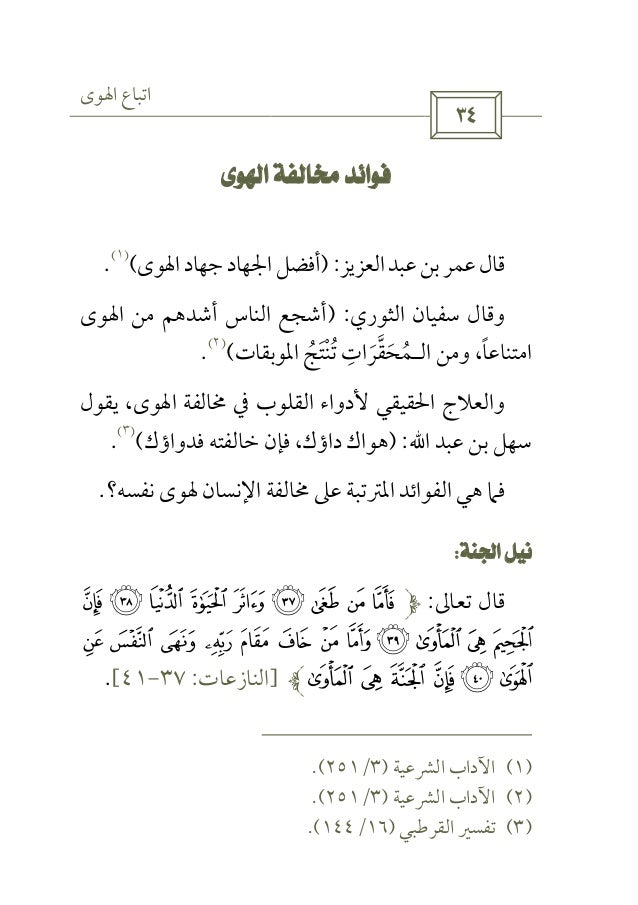 اتباع الهوى
٣٤
فوائد مخالفة الهوى
قال عمر بن عبد العزيز: (أفضل الجهاد جهاد الهوى)(١).
وقال سفيان الثوري: (أشجع الناس أشدهم من الهوى
امتناعاً، ومن الـمُحَقَّرَاتِ تُنْتَجُ الموبقات)(٢).
والعلاج الحقيقي لأدواء القلوب في مخالفة الهوى، يقول
سهل بن عبد الله: (هواك داؤك، فإن خالفته فدواؤك)(٣).
فما هي الفوائد المترتبة على مخالفة الإنسان لهوى نفسه؟.
نيل الجنة:
قال تعالى: ﴿فَأَمَّا مَن طَغَىٰ ٣٧ وَءَاثَرَ ٱلْحَيَوٰةَ ٱلدُّنْيَا ٣٨ فَإِنَّ
ٱلْجَحِيمَ هِىَ ٱلْمَأْوَىٰ ٣٩ وَأَمَّا مَنْ خَافَ مَقَامَ رَبِّهِۦ وَنَهَى ٱلنَّفْسَ عَنِ
ٱلْهَوَىٰ ٤٠ فَإِنَّ ٱلْجَنَّةَ هِىَ ٱلْمَأْوَىٰ﴾ [النازعات: ٣٧-٤١].
(١) الآداب الشرعية (٣/ ٢٥١).
(٢) الآداب الشرعية (٣/ ٢٥١).
(٣) تفسير القرطبي (١٦/ ١٤٤).